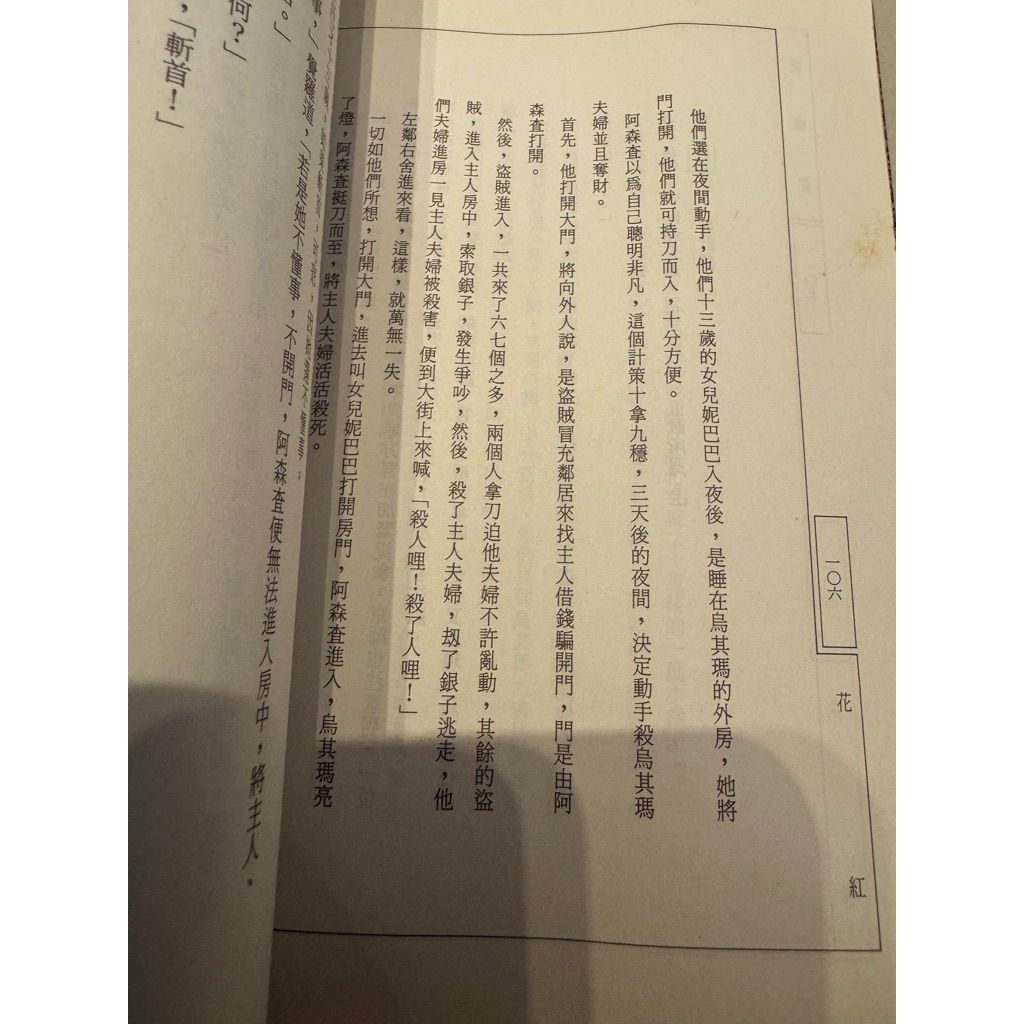 一〇六
花
紅
他們選在夜間動手，他們十三歲的女兒妮巴巴入夜後，是睡在烏其瑪的外房，她將
門打開，他們就可持刀而入，十分方便。
阿森査以爲自己聰明非凡，這個計策十拿九穩，三天後的夜間，決定動手殺烏其瑪
夫婦並且奪財。
首先，他打開大門，將向外人說，是盜賊冒充鄰居來找主人借錢騙開門，門是由阿
森査打開。
然後，盜賊進入，一共來了六七個之多，兩個人拿刀迫他夫婦不許亂動，其餘的盜
賊，進入主人房中，索取銀子，發生爭吵，然後，殺了主人夫婦，刼了銀子逃走，他
們夫婦進房一見主人夫婦被殺害，便到大街上來喊，「殺人哩！殺了人哩！」
左鄰右舍進來看，這樣，就萬無一失。
一切如他們所想，打開大門，進去叫女兒妮巴巴打開房門，阿森査進入，烏其瑪亮
了燈，阿森査挺刀而至，將主人夫婦活活殺死。
，「若是她不懂事，不開門，阿森査便無法進入房中，將主人，
何？」
，「斬首！」